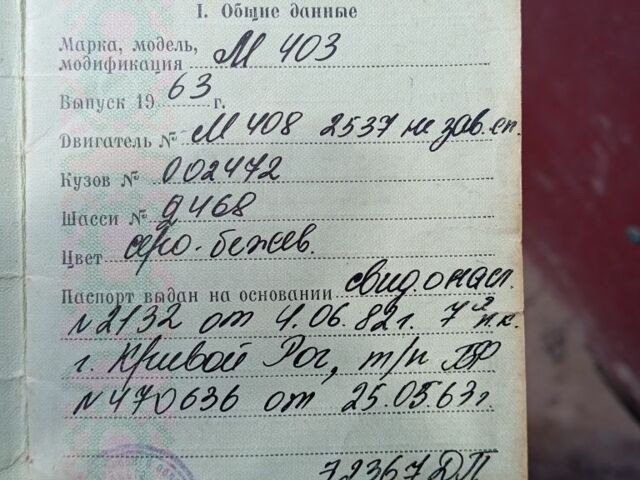 I. Общие данные
Марка, модель, модификация М 403
Выпуск 1963 г.
Двигатель № М 408 2537 не зав. сп.
Кузов № 002472
Шасси № 9468
Цвет серо-бежев.
Паспорт выдан на основании свид о насл.
№ 2132 от 4.06.82 г. 7
г. Кривой Рог, т/п
№ 470636 от 25.0563 г.
72367 ДП